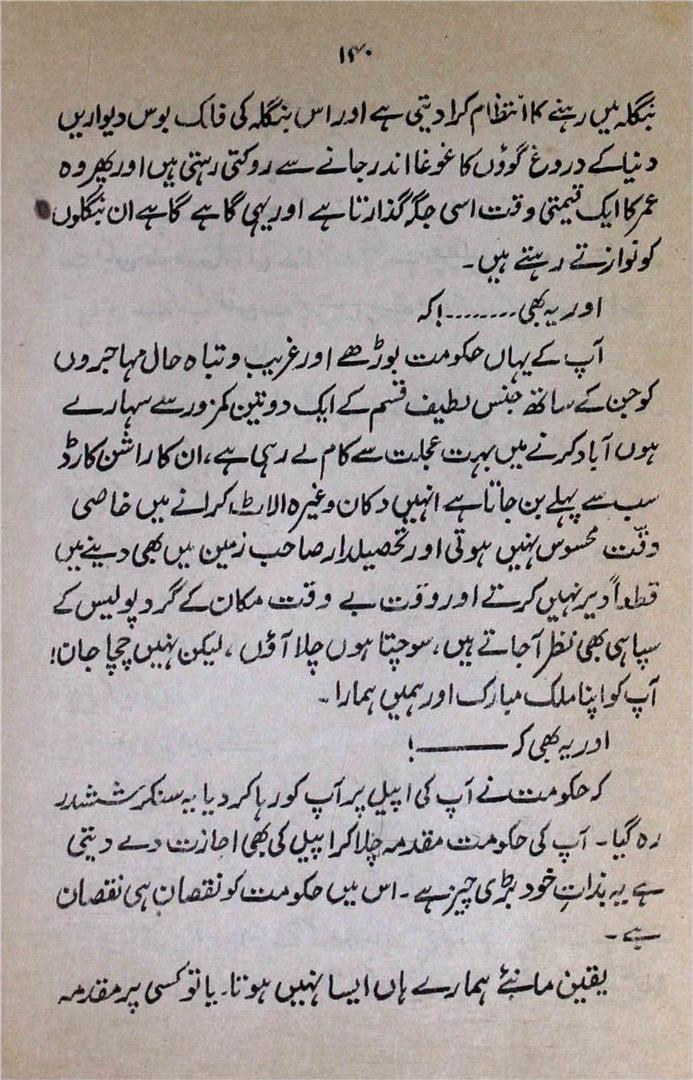 ۱۴۰
بنگلہ میں رہنے کا انتظام کرا دیتی ہے اور اس بنگلہ کی فلک بوس دیواریں
دنیا کے دروغ گوؤں کا غوغا اندر جانے سے روکتی رہتی ہیں اور پھر وہ
عمر کا ایک قیمتی وقت اسی جگہ گذارتا ہے اور یہی گاہے گاہے ان بنگلوں
کو نوازتے رہتے ہیں۔
اور یہ بھی ........! کہ
آپ کے یہاں حکومت بوڑھے اور غریب و تباہ حال مہاجروں
کو جن کے ساتھ جنس لطیف قسم کے ایک دو تین کمزور سے سہارے
ہوں آباد کرنے میں بہت عجلت سے کام لے رہی ہے، ان کا راشن کارڈ
سب سے پہلے بن جاتا ہے انہیں دکان وغیرہ الاٹ کرانے میں خاصی
دقّت محسوس نہیں ہوتی اور تحصیلدار صاحب زمین میں بھی دینے میں
قطعاً دیر نہیں کرتے اور وقت بے وقت مکان کے گرد پولیس کے
سپاہی بھی نظر آجاتے ہیں، سوچتا ہوں چلا آؤں، لیکن نہیں چچا جان!
آپ کو اپنا ملک مبارک اور ہمیں ہمارا۔
اور یہ بھی کہ ———!
کہ حکومت نے آپ کی اپیل پر آپ کو رہا کر دیا یہ سنکر ششدر
رہ گیا۔ آپ کی حکومت مقدمہ چلا کر اپیل کی بھی اجازت دے دیتی
ہے یہ بذاتِ خود بڑی چیز ہے۔ اس میں حکومت کو نقصان ہی نقصان
ہے۔
یقین مانئے ہمارے ہاں ایسا نہیں ہوتا۔ یا تو کسی پر مقدمہ